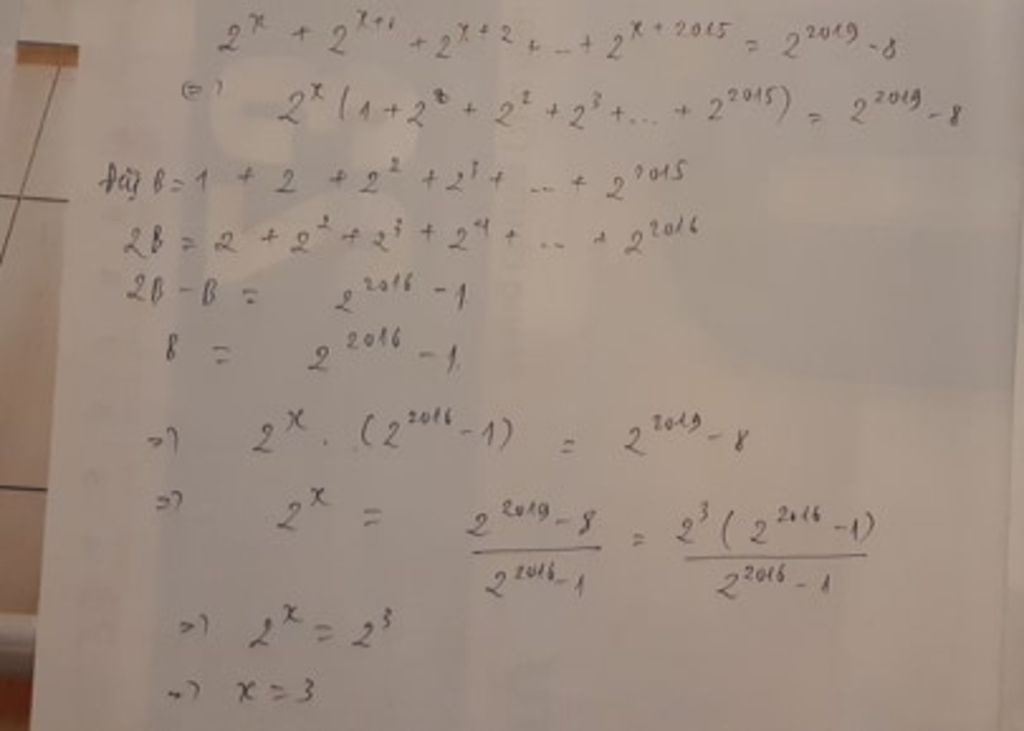 2^x + 2^{x+1} + 2^{x+2} + ... + 2^{x+2015} = 2^{2019} - 8
<=> 2^x (1 + 2 + 2^2 + 2^3 + ... + 2^{2015}) = 2^{2019} - 8
Đặt B = 1 + 2 + 2^2 + 2^3 + ... + 2^{2015}
2B = 2 + 2^2 + 2^3 + 2^4 + ... + 2^{2016}
2B - B = 2^{2016} - 1
B = 2^{2016} - 1
=> 2^x . (2^{2016} - 1) = 2^{2019} - 8
=> 2^x = \frac{2^{2019} - 8}{2^{2016} - 1} = \frac{2^3 (2^{2016} - 1)}{2^{2016} - 1}
=> 2^x = 2^3
=> x = 3